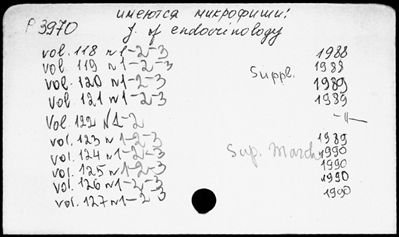 имеются микрофиши:
P 3970 J. of endocrinology
vol. 118 N1-2-3 1988
vol. 119 N1-2-3 Suppl. 1988
vol. 120 N1-2-3 1989
vol. 121 N1-2-3 1989
Vol 122 N1-2 -"-
vol. 123 N1-2-3 1989
vol. 124 N1-2-3 Sup. March 1990
vol. 125 N1-2-3 1990
vol. 126 N1-2-3 1990
vol. 127 N1-2-3 1990